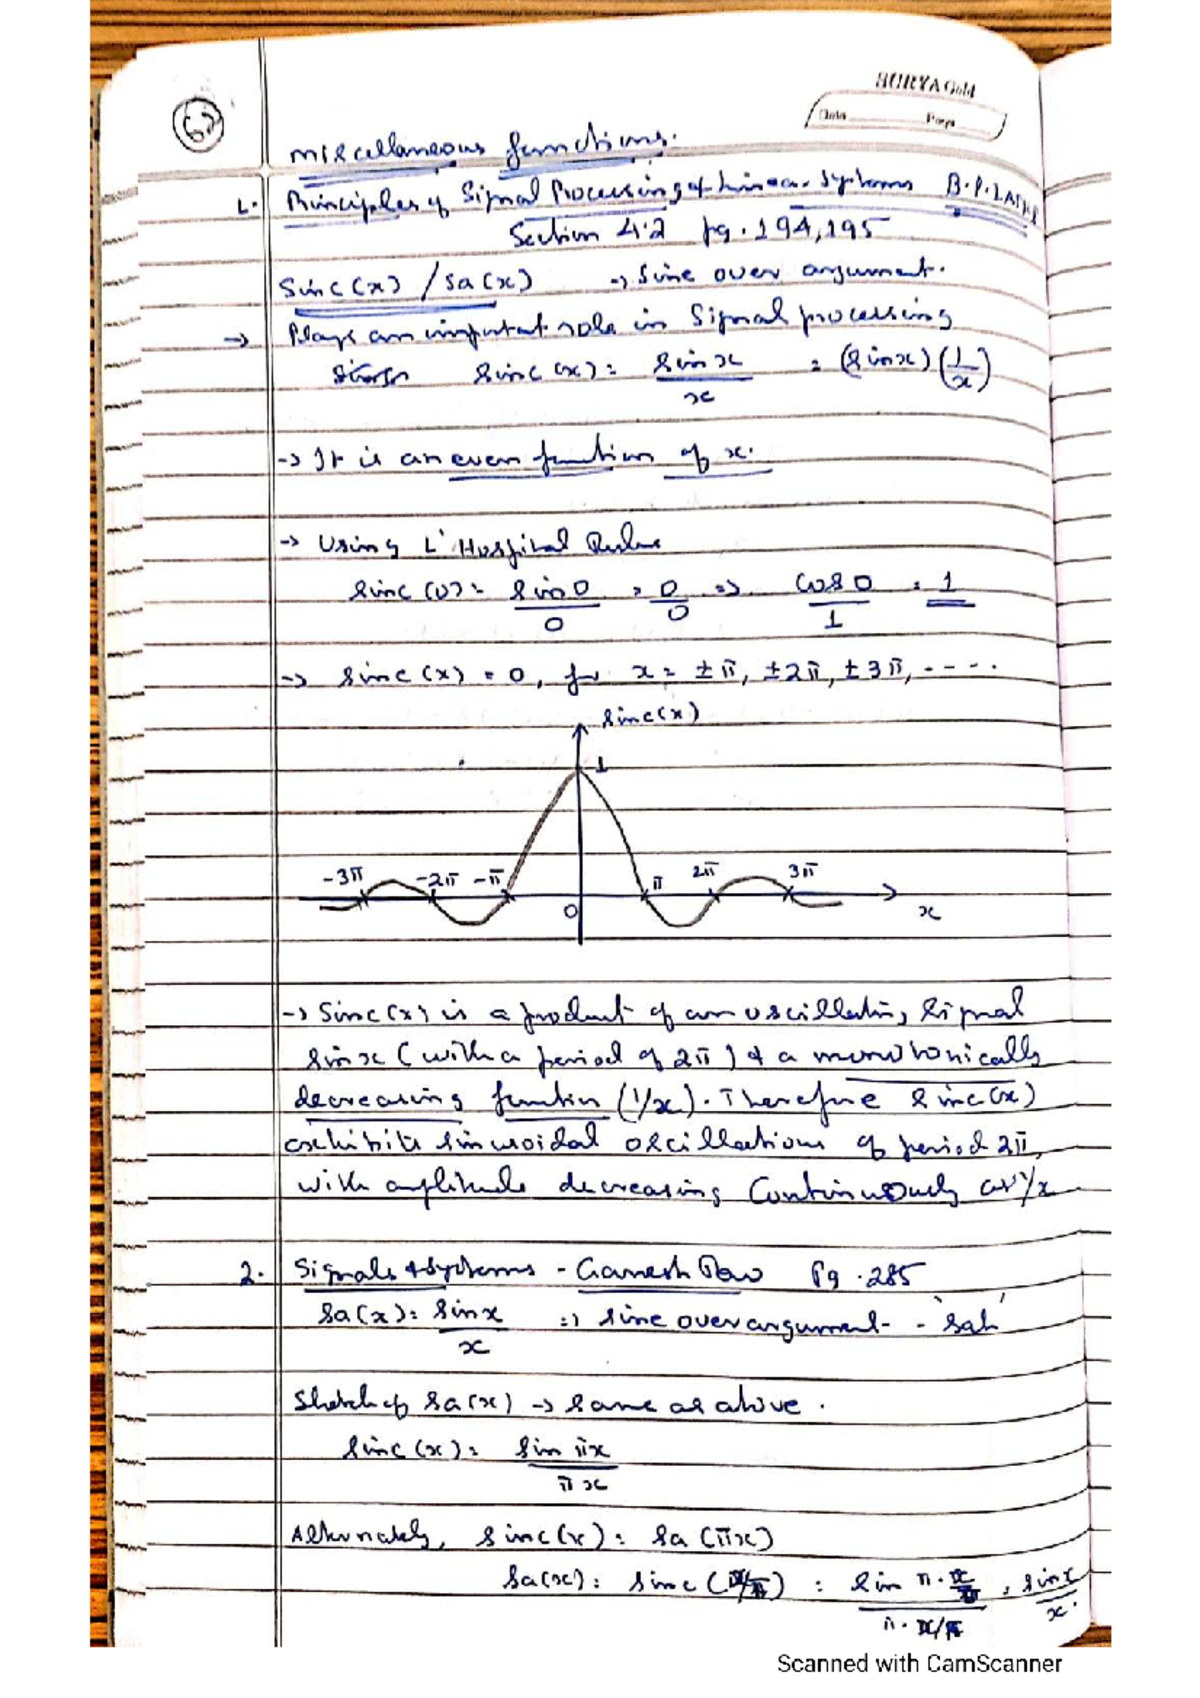 SURYA Gold
Date Page
67
Miscellaneous functions.
1. Principles of Signal Processing & Linear Systems B.P. LATHI
Section 4.2 pg. 194,195
Sinc(x) / Sa(x) → Sine over argument.
→ Plays an important role in Signal processing
sinc(x) = sin x / x = (sin x)(1/x)
→ It is an even function of x.
→ Using L'Hospital Rule
sinc(0) = sin 0 / 0 = 0/0 ⇒ cos 0 / 1 = 1
→ sinc(x) = 0, for x = ±π, ±2π, ±3π, ----
sinc(x)
1
-3π -2π -π 0 π 2π 3π
x
→ Sinc(x) is a product of an oscillating signal
sin x (with a period of 2π) & a monotonically
decreasing function (1/x). Therefore sinc(x)
exhibits sinusoidal oscillations of period 2π,
with amplitude decreasing continuously as 1/x
2. Signals & Systems - Ganesh Rao Pg. 285
Sa(x) = sin x / x ⇒ sine over argument - 'Sah'
Sketch of Sa(x) → same as above.
sinc(x) = sin πx / πx
Alternately, sinc(x) = Sa(πx)
Sa(x) = sinc(x/π) = sin π·x/π / π·x/π = sin x / x.
Scanned with CamScanner